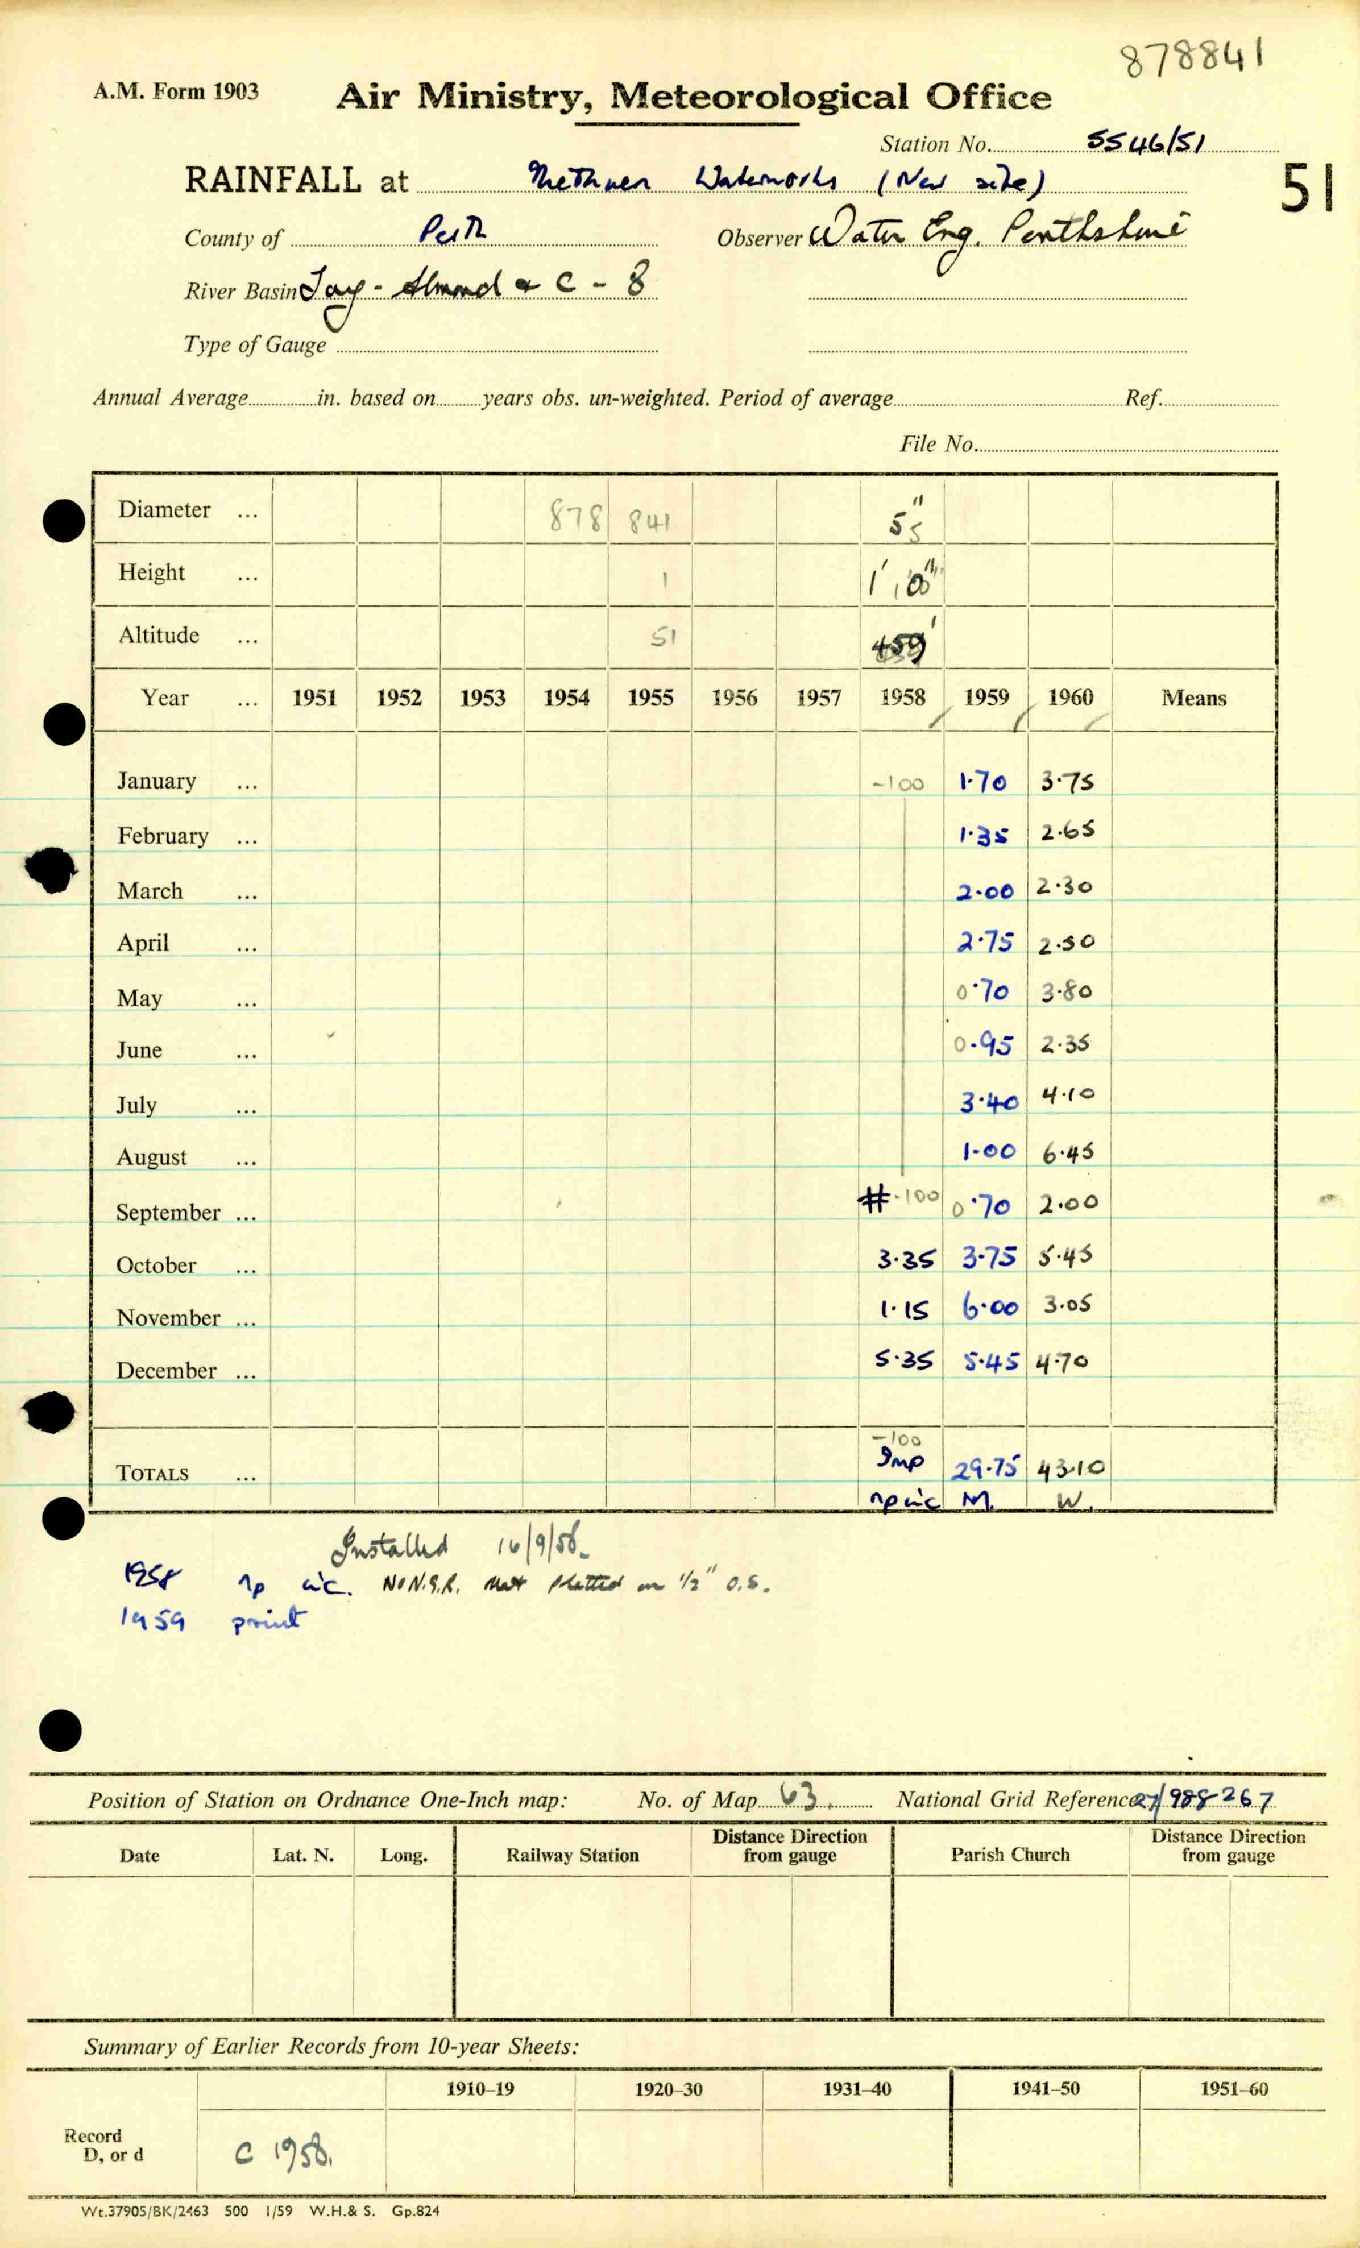 878841
A.M. Form 1903 Air Ministry, Meteorological Office
Station No. 5546/51
RAINFALL at Methven Waterworks (New site) 51
County of Perth Observer Water Eng. Perthshire
River Basin Tay - Almond & C - 8
Type of Gauge
Annual Average in. based on years obs. un-weighted. Period of average Ref.
File No.
Diameter ... 878 841 5"
Height ... 1 1' 00"
Altitude ... 51 459'
Year ... 1951 1952 1953 1954 1955 1956 1957 1958 1959 1960 Means
January ... -100 1.70 3.75
February ... 1.35 2.65
March ... 2.00 2.30
April ... 2.75 2.50
May ... 0.70 3.80
June ... 0.95 2.35
July ... 3.40 4.10
August ... 1.00 6.45
September ... # -100 0.70 2.00
October ... 3.35 3.75 5.45
November ... 1.15 6.00 3.05
December ... 5.35 5.45 4.70
-100
TOTALS ... Imp 29.75 43.10
np a/c M. W.
Installed 16/9/58.
1958 np a/c. No N.G.R. Not plotted on 1/2" O.S.
1959 print
Position of Station on Ordnance One-Inch map: No. of Map 63. National Grid Reference 27/988267
Date Lat. N. Long. Railway Station Distance Direction from gauge Parish Church Distance Direction from gauge
Summary of Earlier Records from 10-year Sheets:
1910–19 1920–30 1931–40 1941–50 1951–60
Record
D, or d C 1958.
Wt.37905/BK/2463 500 1/59 W.H.& S. Gp.824